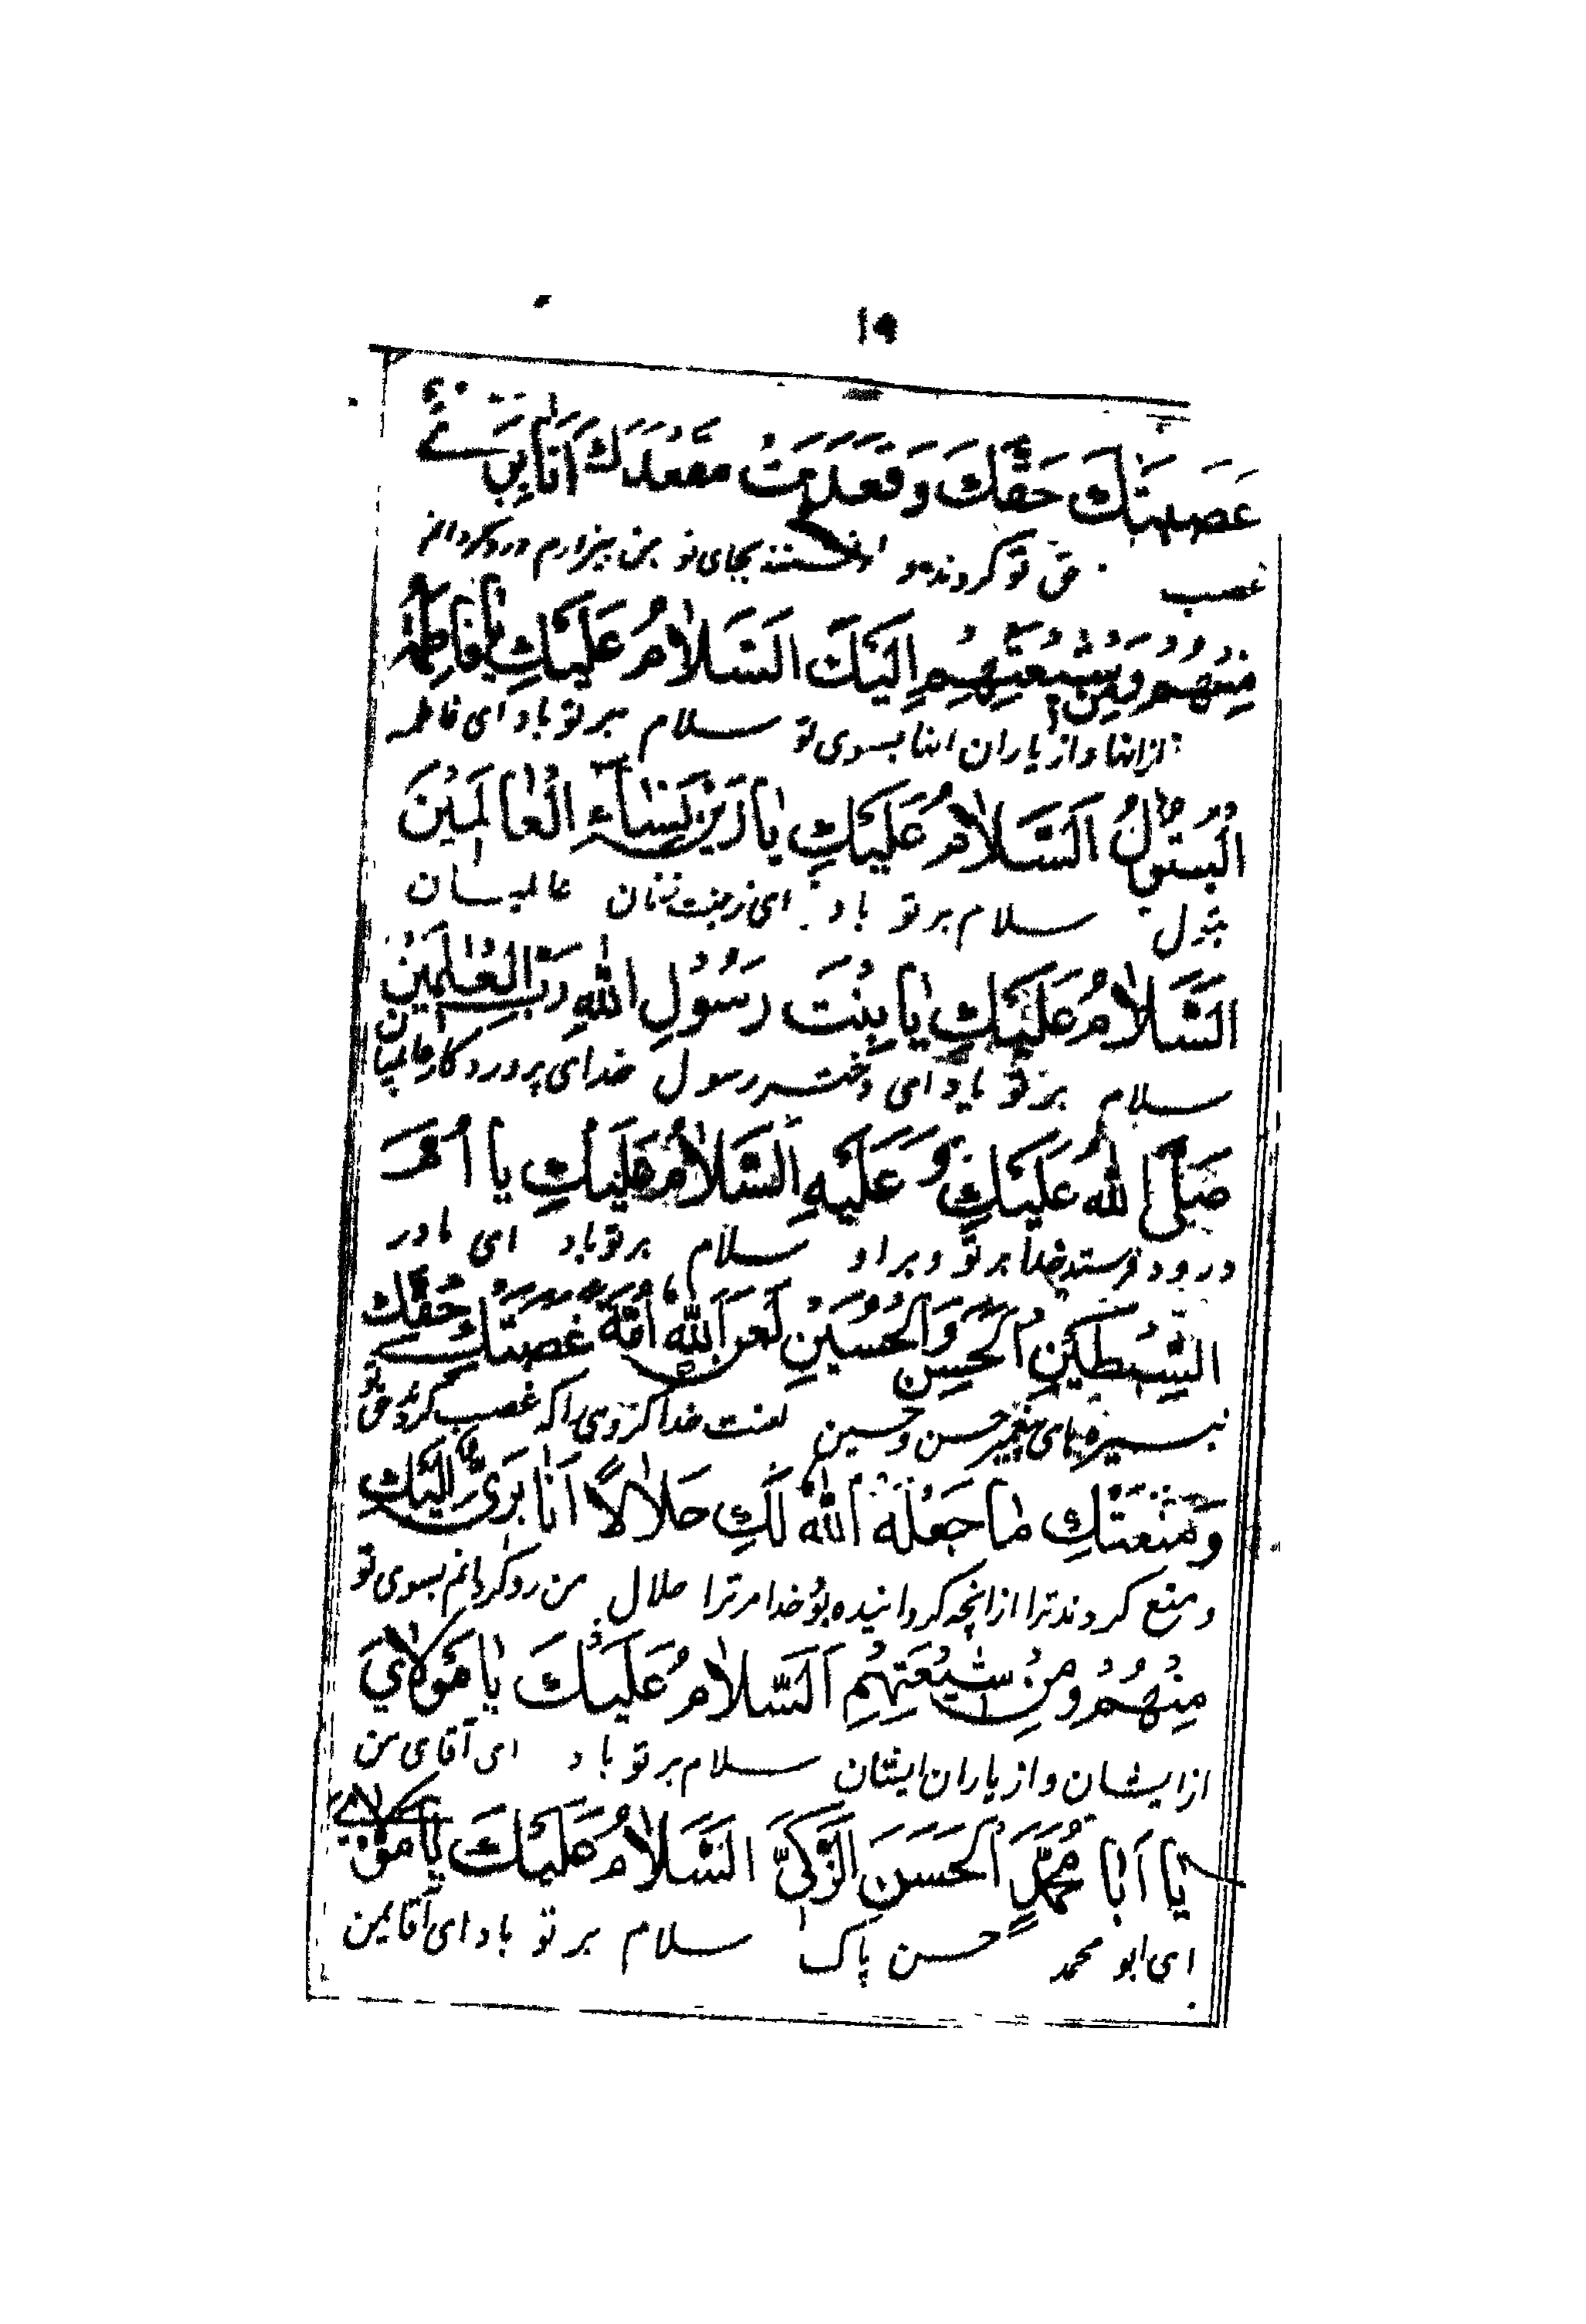 ۱۹
غَصَبَتْكَ حَقَّكَ وَقَعَدَتْ مَقْعَدَكَ اَنَا بَرِئٌ
غصب حق تو کردند و نشستند بجای تو من بیزارم و روگردانم
مِنْهُمْ وَمِنْ شِيْعَتِهِمْ اِلَيْكَ اَلسَّلَامُ عَلَيْكِ يَا فَاطِمَةُ
از انها و از یاران انها بسوی تو سلام بر تو باد ای فاطمه
الْبَتُوْلُ اَلسَّلَامُ عَلَيْكِ يَا زَيْنَ نِسَآءِ الْعَالَمِيْنَ
بتول سلام بر تو باد ای زینت زنان عالمیان
اَلسَّلَامُ عَلَيْكِ يَا بِنْتَ رَسُوْلِ اللهِ رَبِّ الْعٰلَمِيْنَ
سلام بر تو باد ای دختر رسول خدای پروردگار عالمیان
صَلَّى اللهُ عَلَيْكِ وَعَلَيْهِ اَلسَّلَامُ عَلَيْكِ يَا اُمَّ
درود فرستد خدا بر تو و بر او سلام بر تو باد ای مادر
السِّبْطَيْنِ الْحَسَنِ وَالْحُسَيْنِ لَعَنَ اللهُ اُمَّةً غَصَبَتْكِ حَقَّكِ
نبیره های پیغمبر حسن و حسین لعنت خدا گروهی را که غصب کردند حق تو
وَمَنَعَتْكِ مَا جَعَلَهُ اللهُ لَكِ حَلَالًا اَنَا بَرِیْءٌ اِلَيْكِ
و منع کردند ترا از انچه گردانیده بود خدا مر ترا حلال من روگردانم بسوی تو
مِنْهُمْ وَمِنْ شِيْعَتِهِمْ اَلسَّلَامُ عَلَيْكَ يَا مَوْلَايَ
از ایشان و از یاران ایشان سلام بر تو باد ای آقای من
يَا اَبَا مُحَمَّدٍ الْحَسَنَ الزَّكِيَّ اَلسَّلَامُ عَلَيْكَ يَا مَوْلَايَ
ای ابو محمد حسن پاک سلام بر تو باد ای آقای من